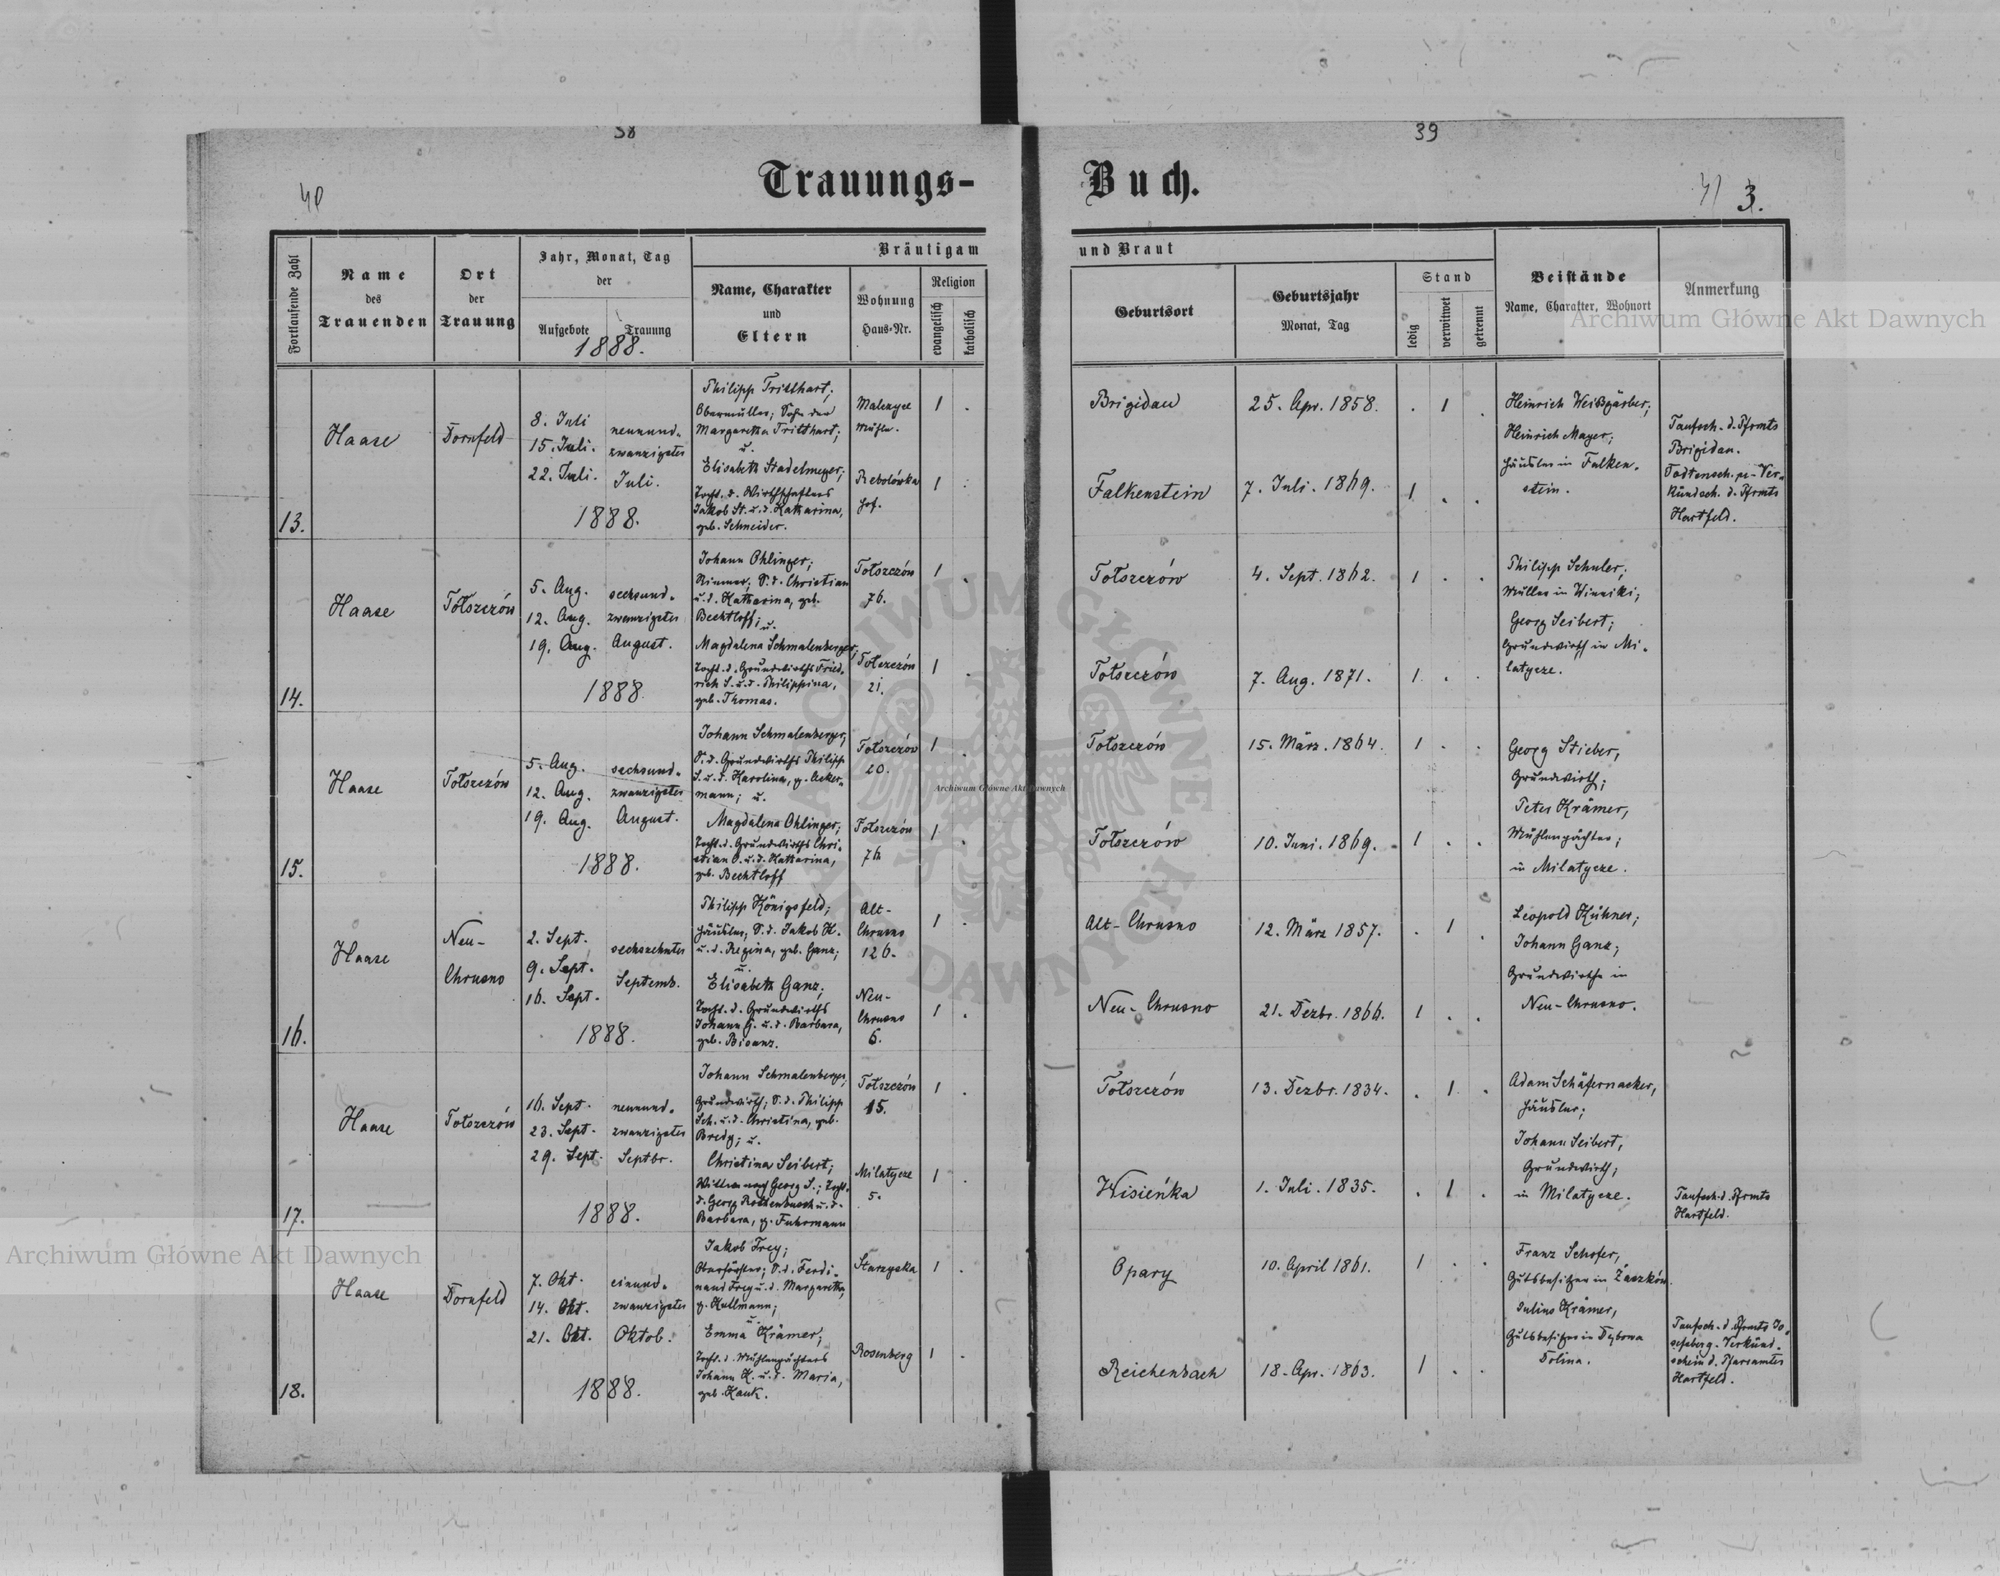 38
39
40
41
3.
Trauungs-
Buch.
Fortlaufende Zahl
Name
des
Trauenden
Ort
der
Trauung
Jahr, Monat, Tag
der
Aufgebote
Trauung
1888.
Bräutigam
Name, Charakter
und
Eltern
Wohnung
Haus-Nr.
Religion
evangelisch
katholisch
und Braut
Geburtsort
Geburtsjahr
Monat, Tag
Stand
ledig
verwitwet
getrennt
Beistände
Name, Charakter, Wohnort
Anmerkung
13.
Haase
Dornfeld
8. Juli
15. Juli.
22. Juli.
neunund-
zwanzigster
Juli.
1888.
Philipp Tritthart,
Obermüller; Sohn der
Margaretha Tritthart;
u.
Elisabeth Stadelmeyer;
Tocht. d. Wirthschafters
Jakob St. u. d. Katharina,
geb. Schneider.
Malczyce
Mühle.
Rebolówka
Hof.
1 .
1 .
Brigidau
25. Apr. 1858.
. 1 .
Falkenstein
7. Juli. 1869.
1 . .
Heinrich Weißgärber;
Heinrich Mayer;
Häusler in Falken-
stein.
Taufsch. d. Pfrmts
Brigidau.
Todtensch. u. Ver-
kündsch. d. Pfrmts
Hartfeld.
14.
Haase
Tołszczów
5. Aug.
12. Aug.
19. Aug.
sechsund-
zwanzigster
August.
1888.
Johann Ohlinger;
Zimmer; S. d. Christian
u. d. Katharina, geb.
Bechtloff; u.
Magdalena Schmalenberger;
Tocht. d. Grundwirths Fried-
rich S. u. d. Philippina,
geb. Thomas.
Tołszczów
76.
Tołszczów
21.
1 .
1 .
Tołszczów
4. Sept. 1862.
1 . .
Tołszczów
7. Aug. 1871.
1 . .
Philipp Schuler,
Müller in Winniki;
Georg Seibert;
Grundwirth in Mi-
latycze.
15.
Haase
Tołszczów
5. Aug.
12. Aug.
19. Aug.
sechsund-
zwanzigster
August.
1888.
Johann Schmalenberger,
S. d. Grundwirths Philipp
S. u. d. Karolina, g. Acker-
mann; u.
Magdalena Ohlinger;
Tocht. d. Grundwirths Chri-
stian O. u. d. Katharina,
geb. Bechtloff
Tołszczów
20.
Tołszczów
76
1 .
1 .
Tołszczów
15. März. 1864.
1 . .
Tołszczów
10. Juni. 1869.
1 . .
Georg Stieber,
Grundwirth;
Peter Krämer,
Mühlenpächter;
in Milatycze.
16.
Haase
Neu-
Chrusno
2. Sept.
9. Sept.
16. Sept.
sechszehnter
Septemb.
1888.
Philipp Königsfeld;
Häusler, S. d. Jakob K.
u. d. Regina, geb. Ganz;
u.
Elisabeth Ganz,
Tocht. d. Grundwirths
Johann G. u. d. Barbara,
geb. Bisanz.
Alt-
Chrusno
126.
Neu-
Chrusno
6.
1 .
1 .
Alt-Chrusno
12. März 1857.
. 1 .
Neu-Chrusno
21. Dezbr. 1866.
1 . .
Leopold Kühner;
Johann Ganz;
Grundwirthe in
Neu-Chrusno.
17.
Haase
Tołszczów
16. Sept.
23. Sept.
29. Sept.
neunund-
zwanzigster
Septbr.
1888.
Johann Schmalenberger,
Grundwirth; S. d. Philipp
Sch. u. d. Christina, geb.
Bredy; u.
Christina Seibert;
Wittwe nach Georg S.; Tocht.
d. Georg Rothenbusch u. d.
Barbara, g. Fuhrmann
Tołszczów
15.
Milatycze
5.
1 .
1 .
Tołszczów
13. Dezbr. 1834.
. 1 .
Wisieńka
1. Juli. 1835.
. 1 .
Adam Schäfernacker,
Häusler;
Johann Seibert,
Grundwirth;
in Milatycze.
Taufsch. d. Pfrmts
Hartfeld.
18.
Haase
Dornfeld
7. Okt.
14. Okt.
21. Okt.
einund-
zwanzigster
Oktob.
1888.
Jakob Frey;
Oberförster; S. d. Ferdi-
nand Frey u. d. Margaretha,
g. Kullmann;
u.
Emma Krämer;
Tocht. d. Mühlenpächters
Johann K. u. d. Maria,
geb. Kauk.
Starzyska
Rosenberg
1 .
1 .
Opary
10. April 1861.
1 . .
Reichenbach
18. Apr. 1863.
1 . .
Franz Schofer,
Gutsbesitzer in Żaszków.
Julius Krämer,
Gutsbesitzer in Dębowa
Dolina.
Taufsch. d. Pfrmts Jo-
sefsberg. Verkünd-
schein d. Pfarramtes
Hartfeld.
Archiwum Główne Akt Dawnych
Archiwum Główne Akt Dawnych
Archiwum Główne Akt Dawnych
ARCHIWUM GŁÓWNE AKT DAWNYCH